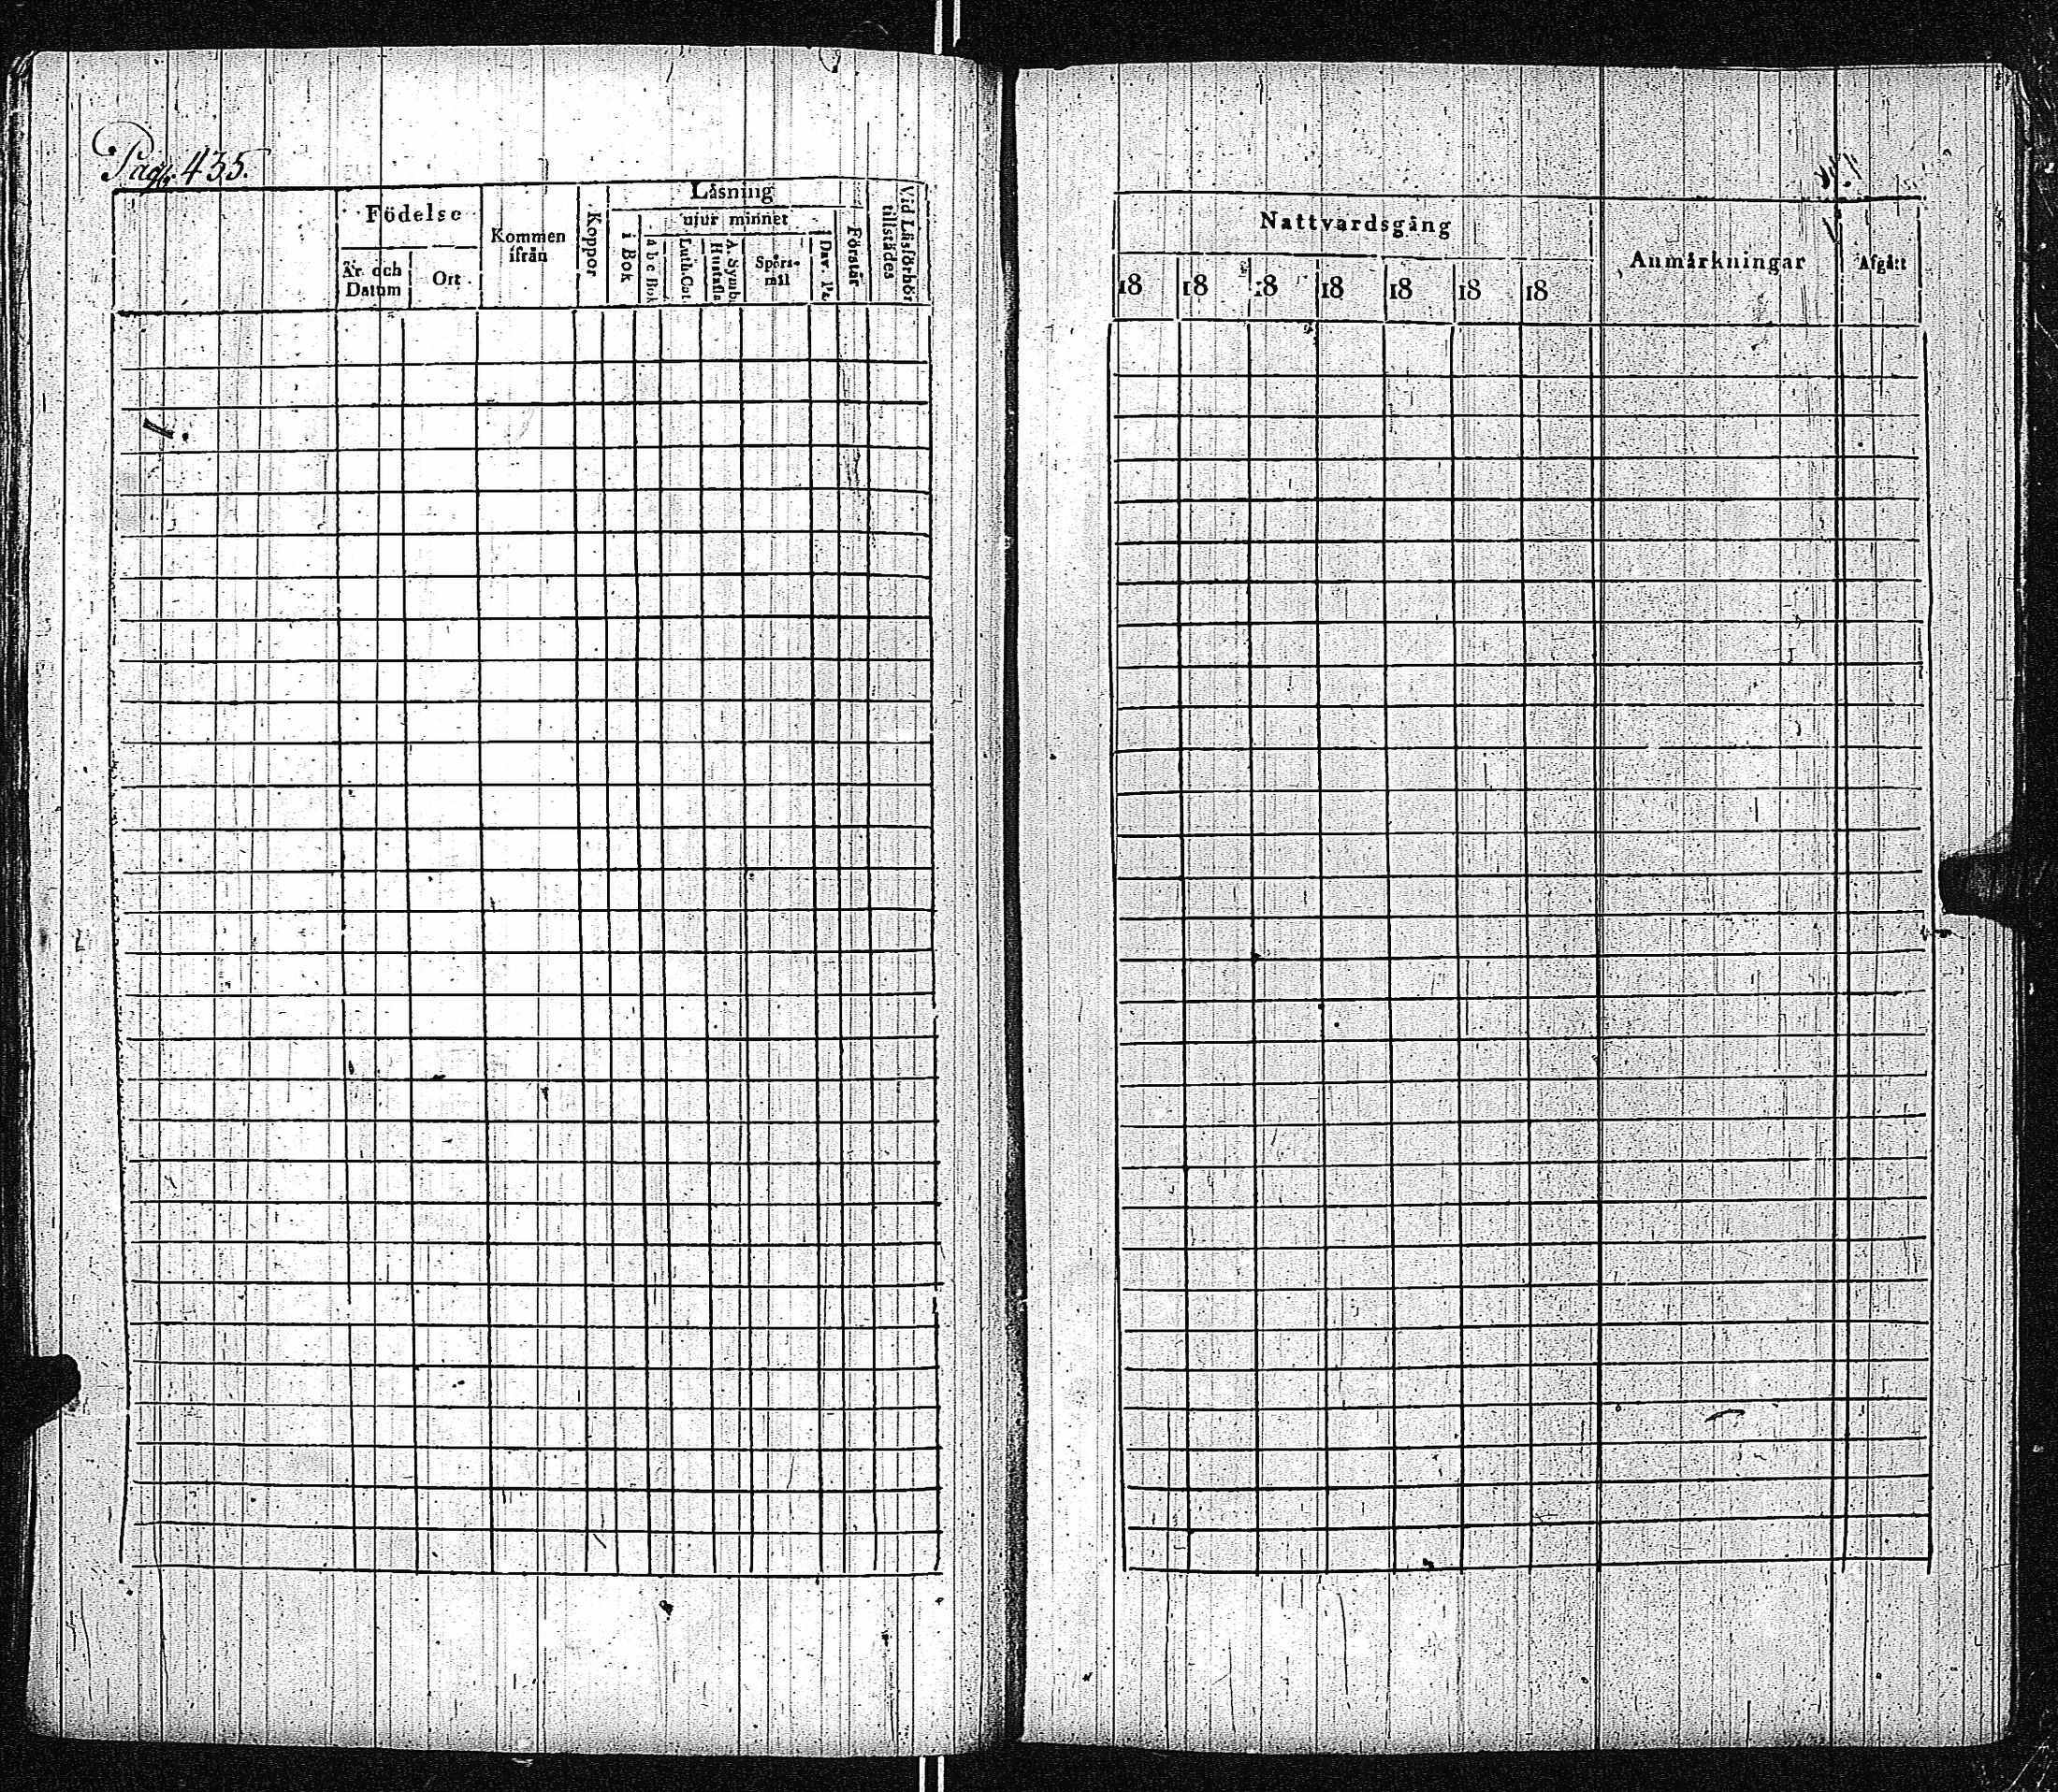 Pag. 435.
Födelse
År och Datum
Ort
Kommen ifrån
Koppor
Läsning
i Bok
utur minnet
a b c Bok
Luth. Cat.
A. Symb. Hustafla
Spörsmål
Dav. Ps.
Förstår
Vid Läsförhör tillstädes
Nattvardsgång
18 18 18 18 18 18 18
Anmärkningar
Afgått